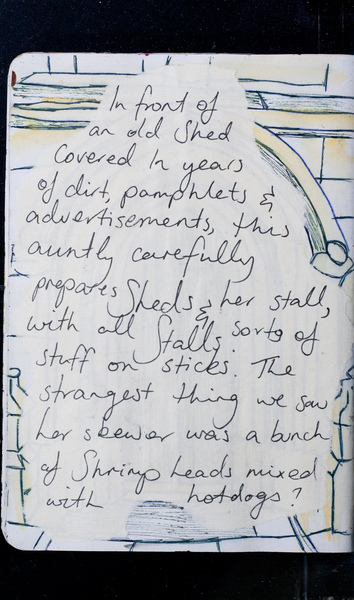 In front of
an old Shed
Covered In years
of dirt, pamphlets &
advertisements, this
auntly carefully
prepares her stall,
Sheds & Stalls
with all sorts of
stuff on sticks. The
strangest thing we saw
her skewer was a bunch
of Shrimp heads mixed
with hotdogs?